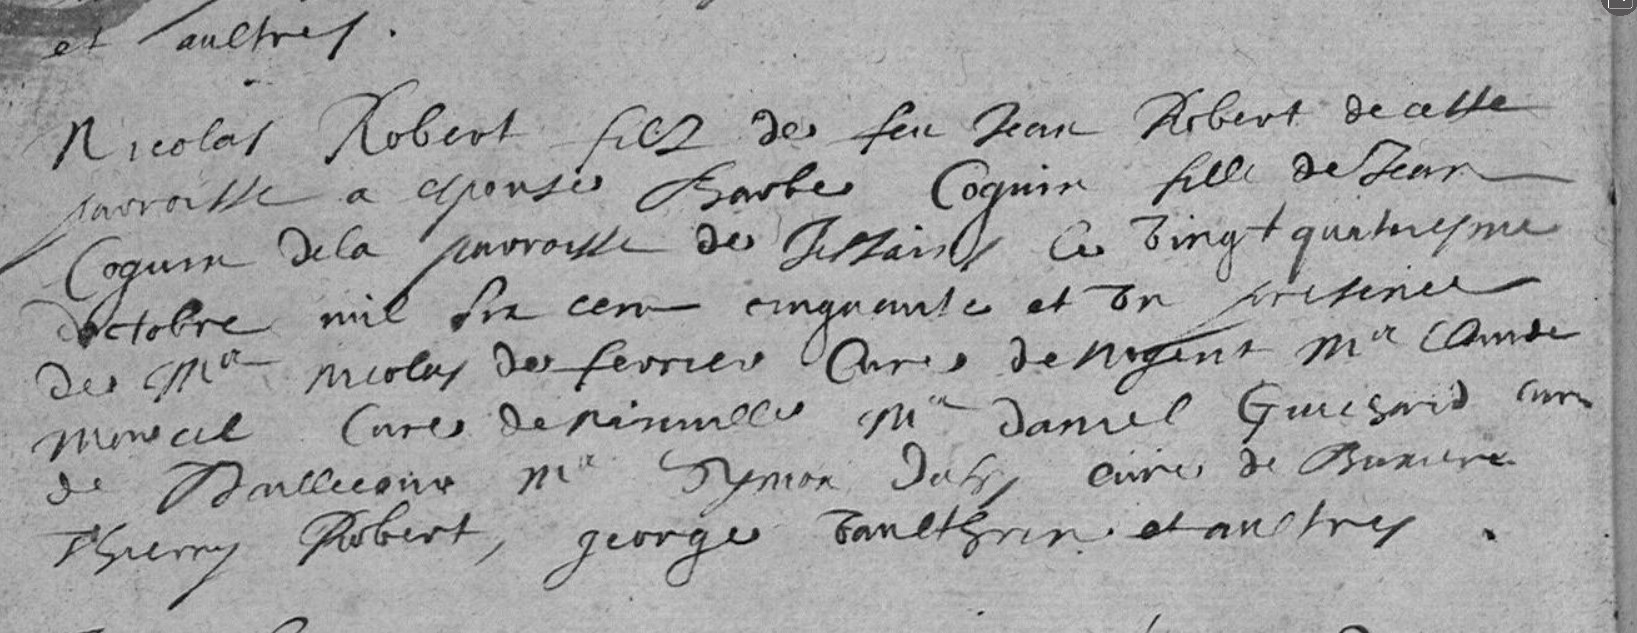 et aultres .
Nicolas Robert filz de feu Jean Robert de ceste
parroisse a espousé Barbe Coquin fille de Jean
Coquin de la parroisse de Jessains le vingt quatriesme
doctobre mil six cens cinquante et un presence
de Mr Nicolas de fevrier Curé de Nogent Mr Claude
Curé de Mr Daniel Guichard curé
de Mr Symon curé de
Thierry Robert, george Vaulthrin et aultres .